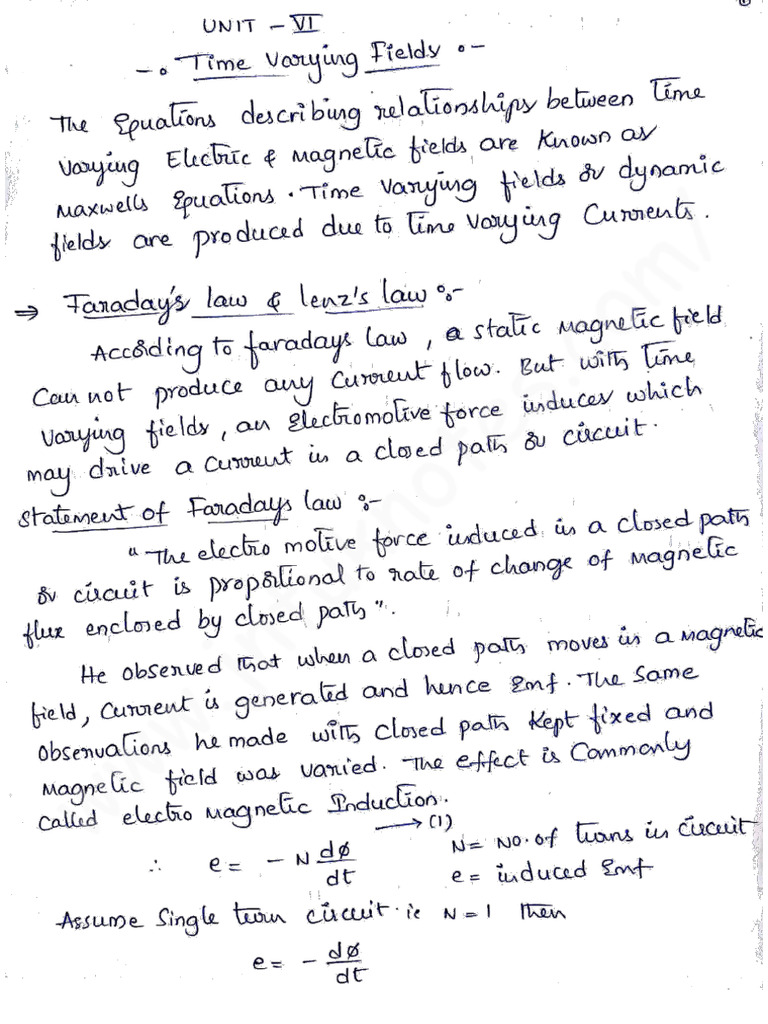 UNIT - VI
Time Varying Fields :-
The Equations describing relationships between time
varying Electric & Magnetic fields are known as
Maxwells Equations. Time varying fields or dynamic
fields are produced due to time varying Currents.
⇒ Faraday's law & lenz's law :-
According to faradays law, a static magnetic field
Can not produce any current flow. But with time
varying fields, an Electromotive force induces which
may drive a current in a closed path or circuit.
Statement of Faradays law :-
"The electro motive force induced in a closed path
or circuit is proportional to rate of change of magnetic
flux enclosed by closed path".
He observed that when a closed path moves in a magnetic
field, Current is generated and hence Emf. The Same
Observations he made with closed path kept fixed and
magnetic field was varied. The effect is Commonly
called electro magnetic Induction.
∴ e = - N dø/dt → (1) N = No. of turns in circuit
e = induced Emf
Assume Single turn circuit ie N = 1 then
e = - dø/dt